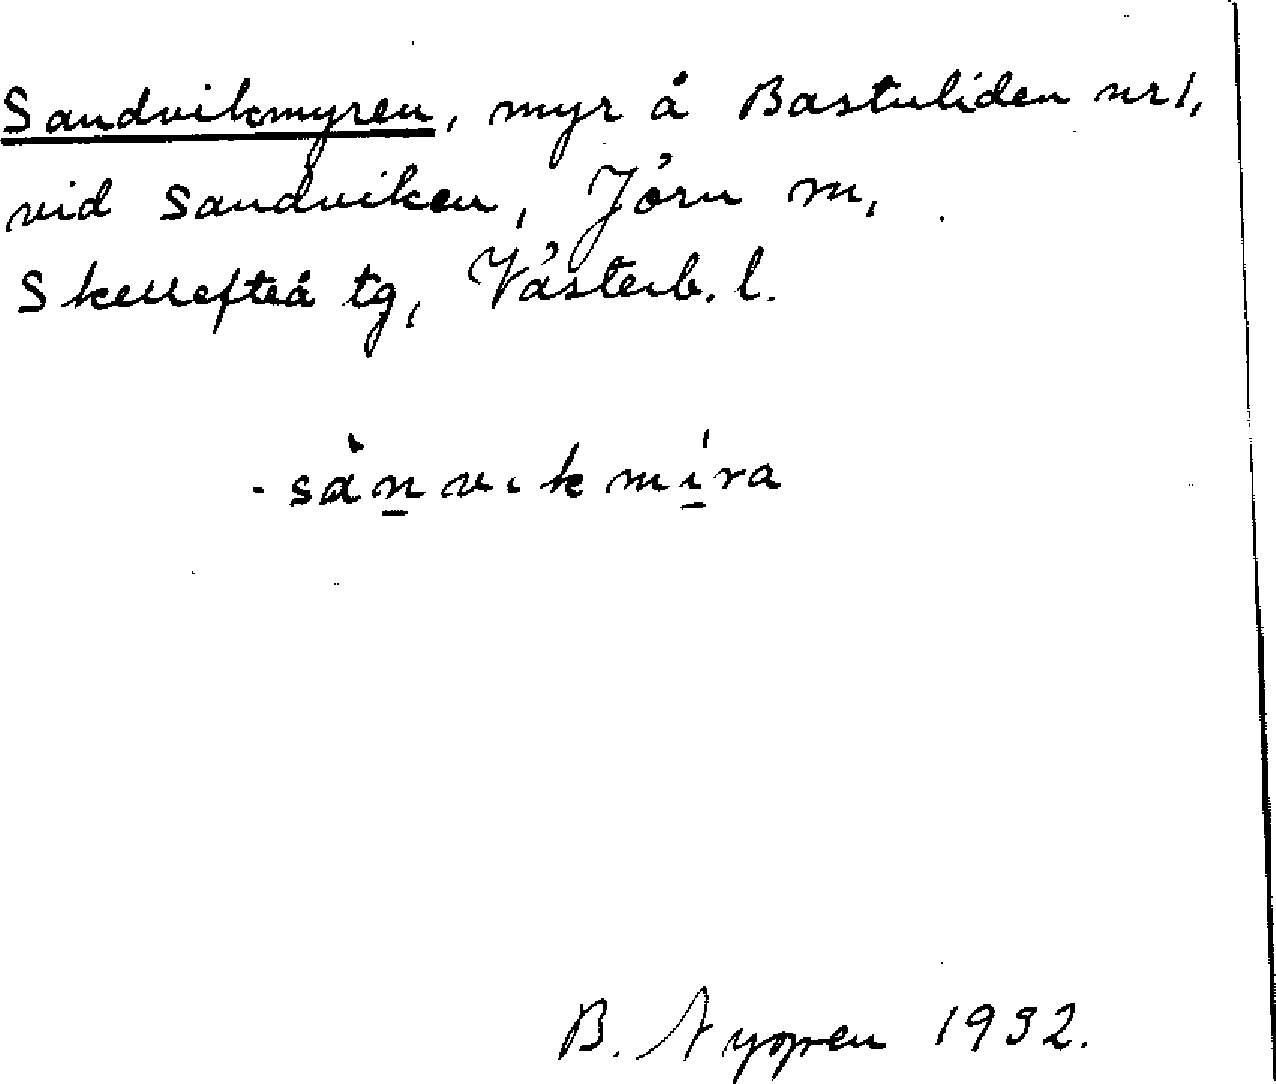 Sandvikmyren, myr å Bastuliden nr 1,
vid Sandviken, Jörn m,
Skellefteå tg, Västerb. l.
- sànvikmíra
B. Nygren 1932.